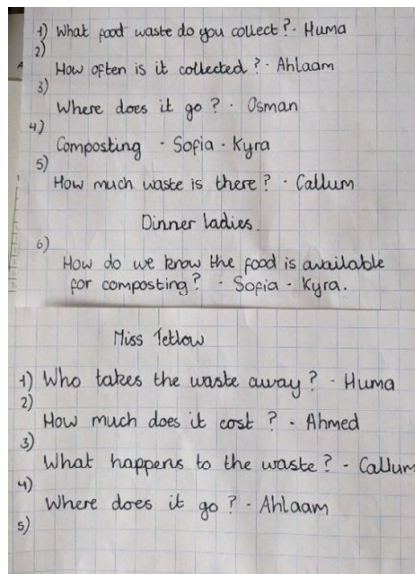 1) What food waste do you collect? · Huma
2)
How often is it collected? · Ahlaam
3)
Where does it go? · Osman
4)
Composting - Sofia - Kyra
5)
How much waste is there? · Callum
Dinner ladies.
6)
How do we know the food is available
for composting? - Sofia - Kyra.
Miss Tetlow
1) Who takes the waste away? - Huma
2)
How much does it cost? - Ahmed
3)
What happens to the waste? - Callum
4)
Where does it go? - Ahlaam
5)